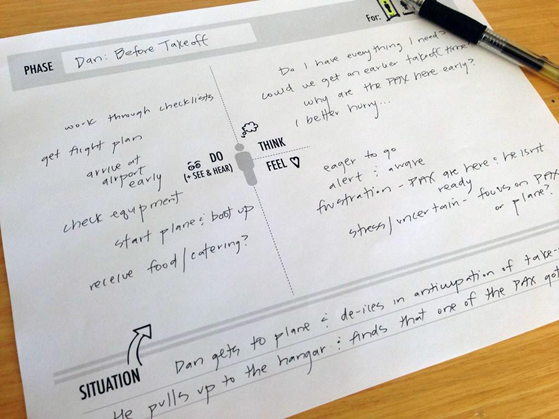 For:
PHASE
Dan: Before Takeoff
Do I have everything I need?
could we get an earlier takeoff time?
why are the PAX here early?
I better hurry...
work through checklists
get flight plan
arrive at
airport
early
check equipment
start plane & boot up
receive food/catering?
DO
(+ SEE & HEAR)
THINK
FEEL
eager to go
alert & aware
frustration - PAX are here & he isn't
ready
stress/uncertain - focus on PAX
or plane?
SITUATION
Dan gets to plane & de-ices in anticipation of take-
He pulls up to the hangar & finds that one of the PAX got